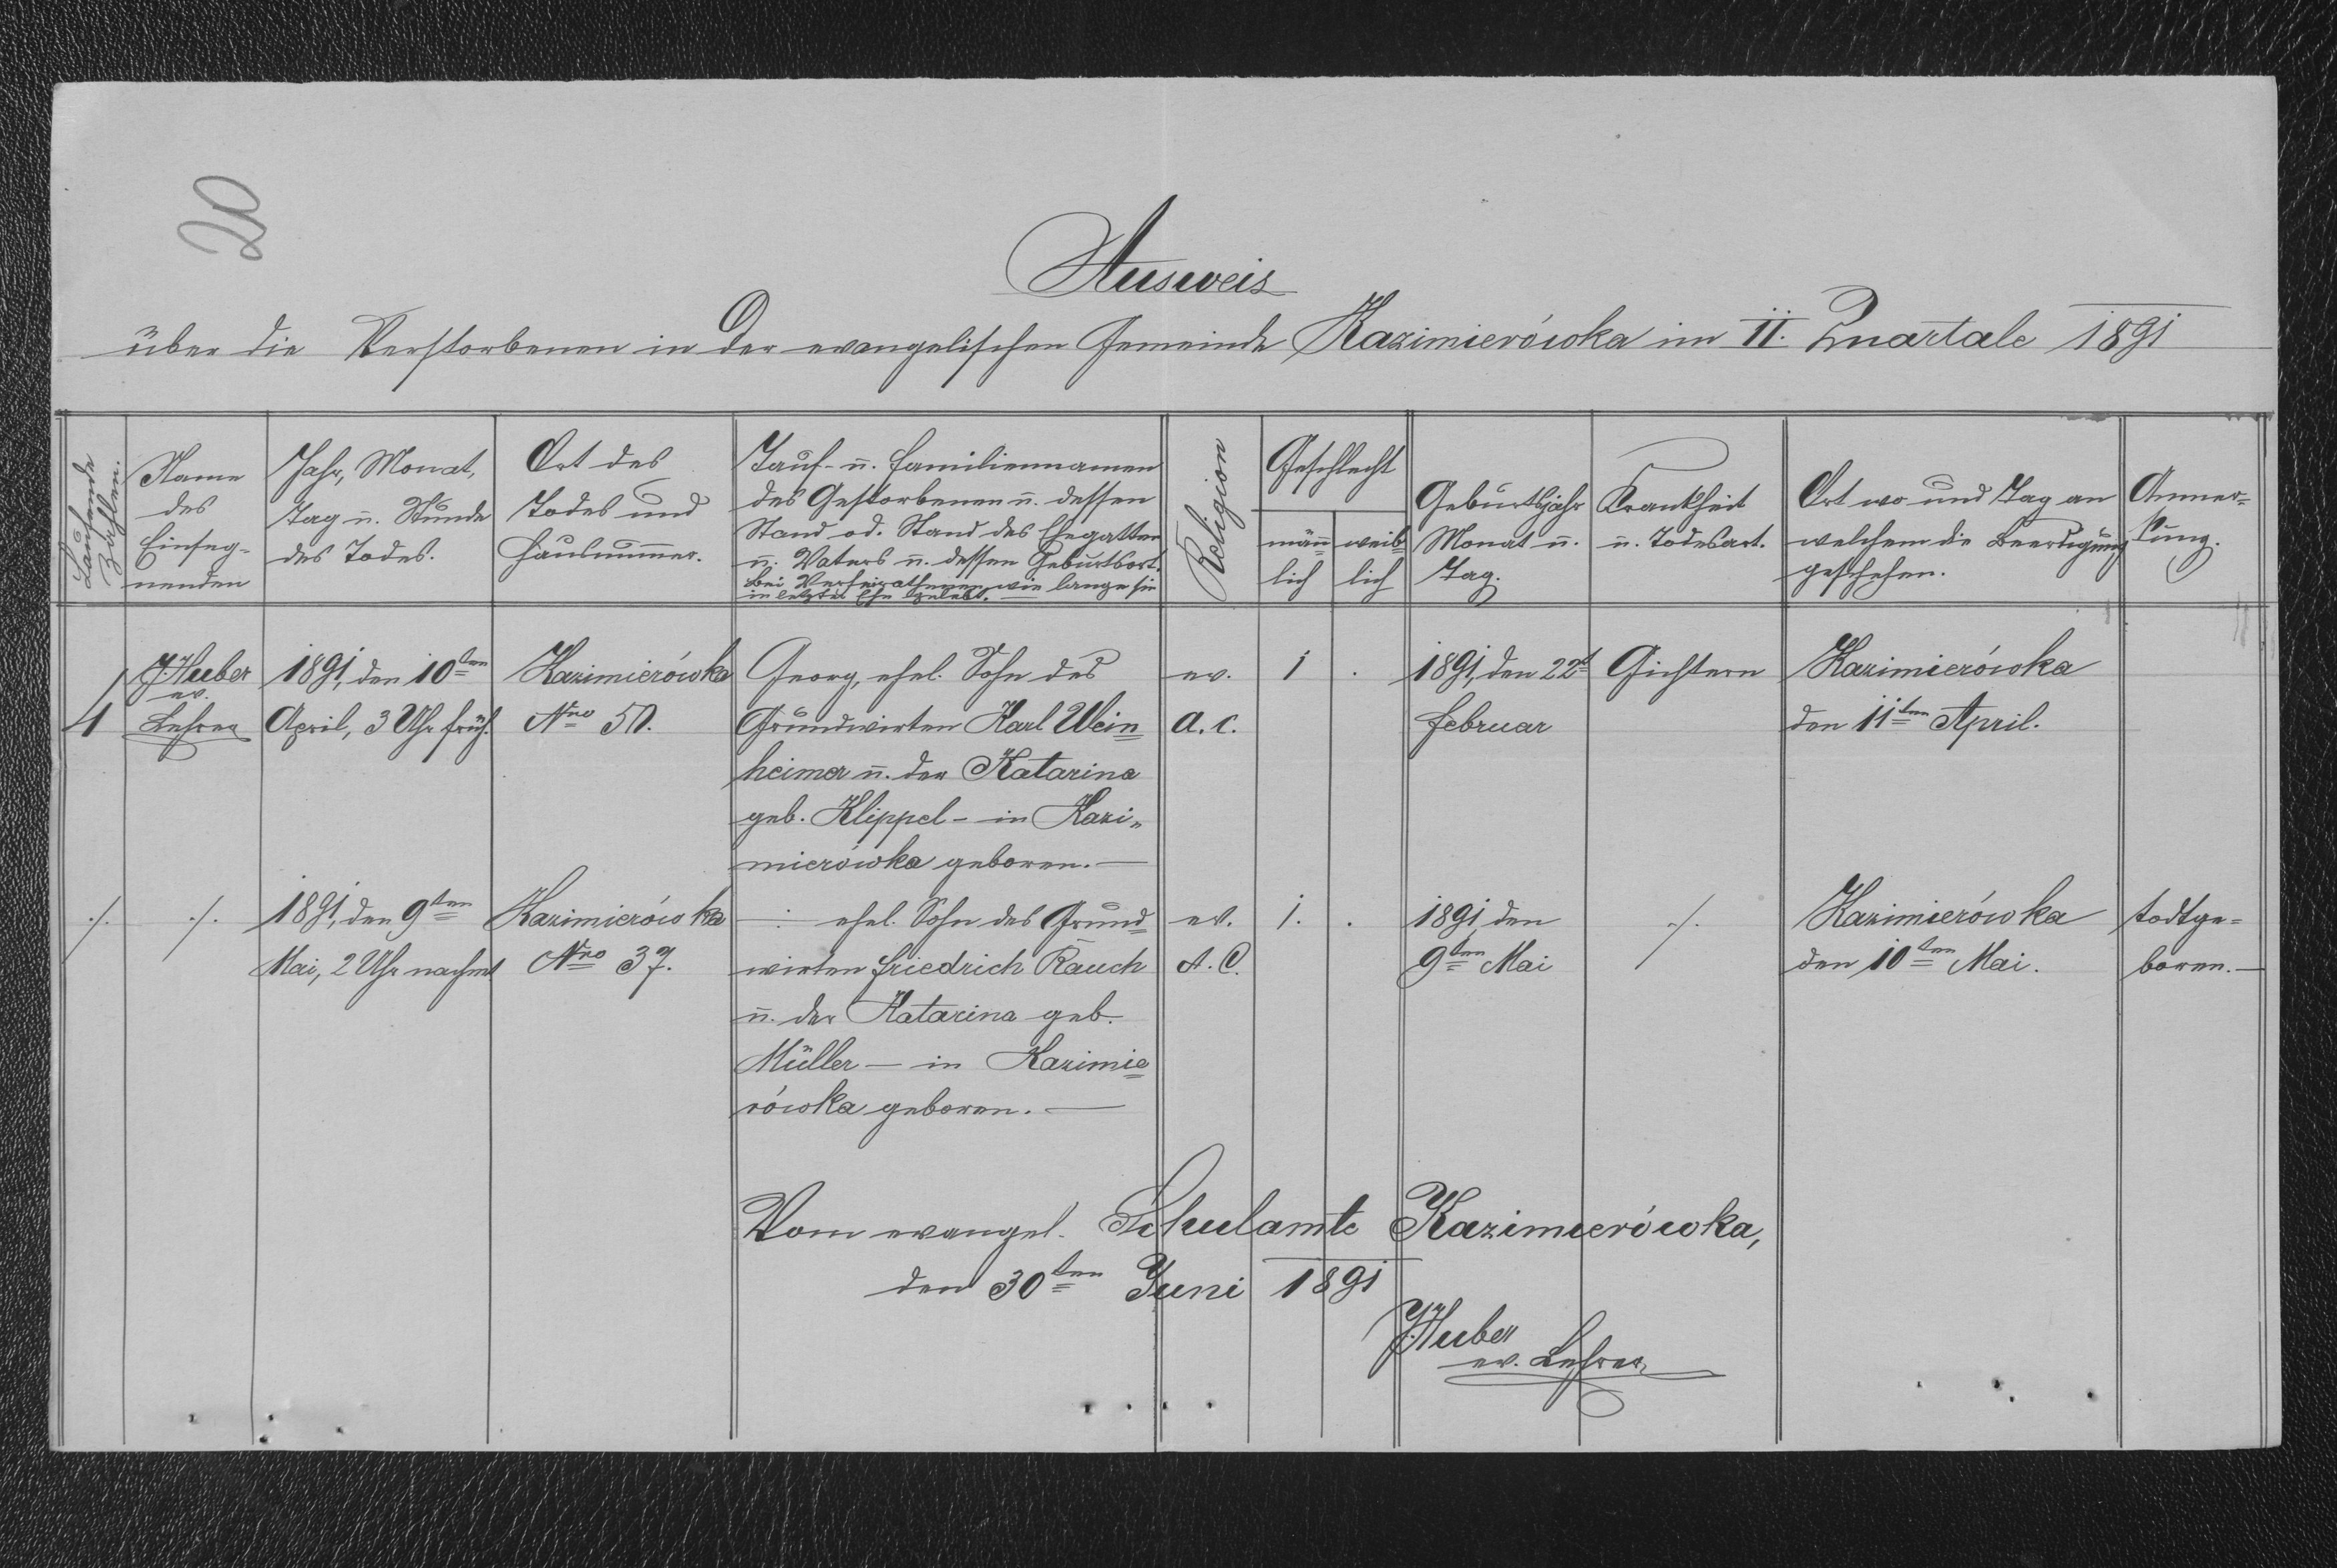 20
Ausweis
über die Verstorbenen in der evangelischen Gemeinde Kazimierówka im II. Quartale 1891
Laufende Zahlen.
Name
des
Einseg-
nenden
Jahr, Monat,
Tag u. Stunde
des Todes.
Ort des
Todes und
Hausnummer.
Tauf- u. Familiennamen
des Gestorbenen u. dessen
Stand od. Stand des Ehegatten
u. Vaters u. dessen Geburtsort.
bei Verheiratheten wie lange sie
in letzter Ehe gelebt.
Religion
Geschlecht
männ
lich
weib
lich
Geburtsjahr
Monat u.
Tag.
Krankheit
u. Todesart.
Ort wo und Tag an
welchem die Beerdigung
geschehen.
Anmer=
kung.
4
J. Huber
ev.
Lehrer
1891, den 10ten
April, 3 Uhr früh.
Kazimierówka
Nro 50.
Georg, ehel. Sohn des
Grundwirten Karl Wein=
heimer u. der Katarina
geb. Klippel - in Kazi=
mierówka geboren. —
ev.
a. c.
1
.
1891, den 22t
Februar
Gichtern
Kazimierówka
den 11ten April.
./.
./.
1891, den 9ten
Mai, 2 Uhr nachmt
Kazimierówka
Nro 37.
— : ehel. Sohn des Grund=
wirten Friedrich Rauch
u. der Katarina geb.
Müller — in Kazimie=
rówka geboren. —
ev.
A. C.
1.
.
1891, den
9ten Mai
./.
Kazimierówka
den 10ten Mai.
todtge=
boren. —
Vom evangel. Schulamte Kazimierówka,
den 30ten Juni 1891
J. Huber
ev. Lehrer